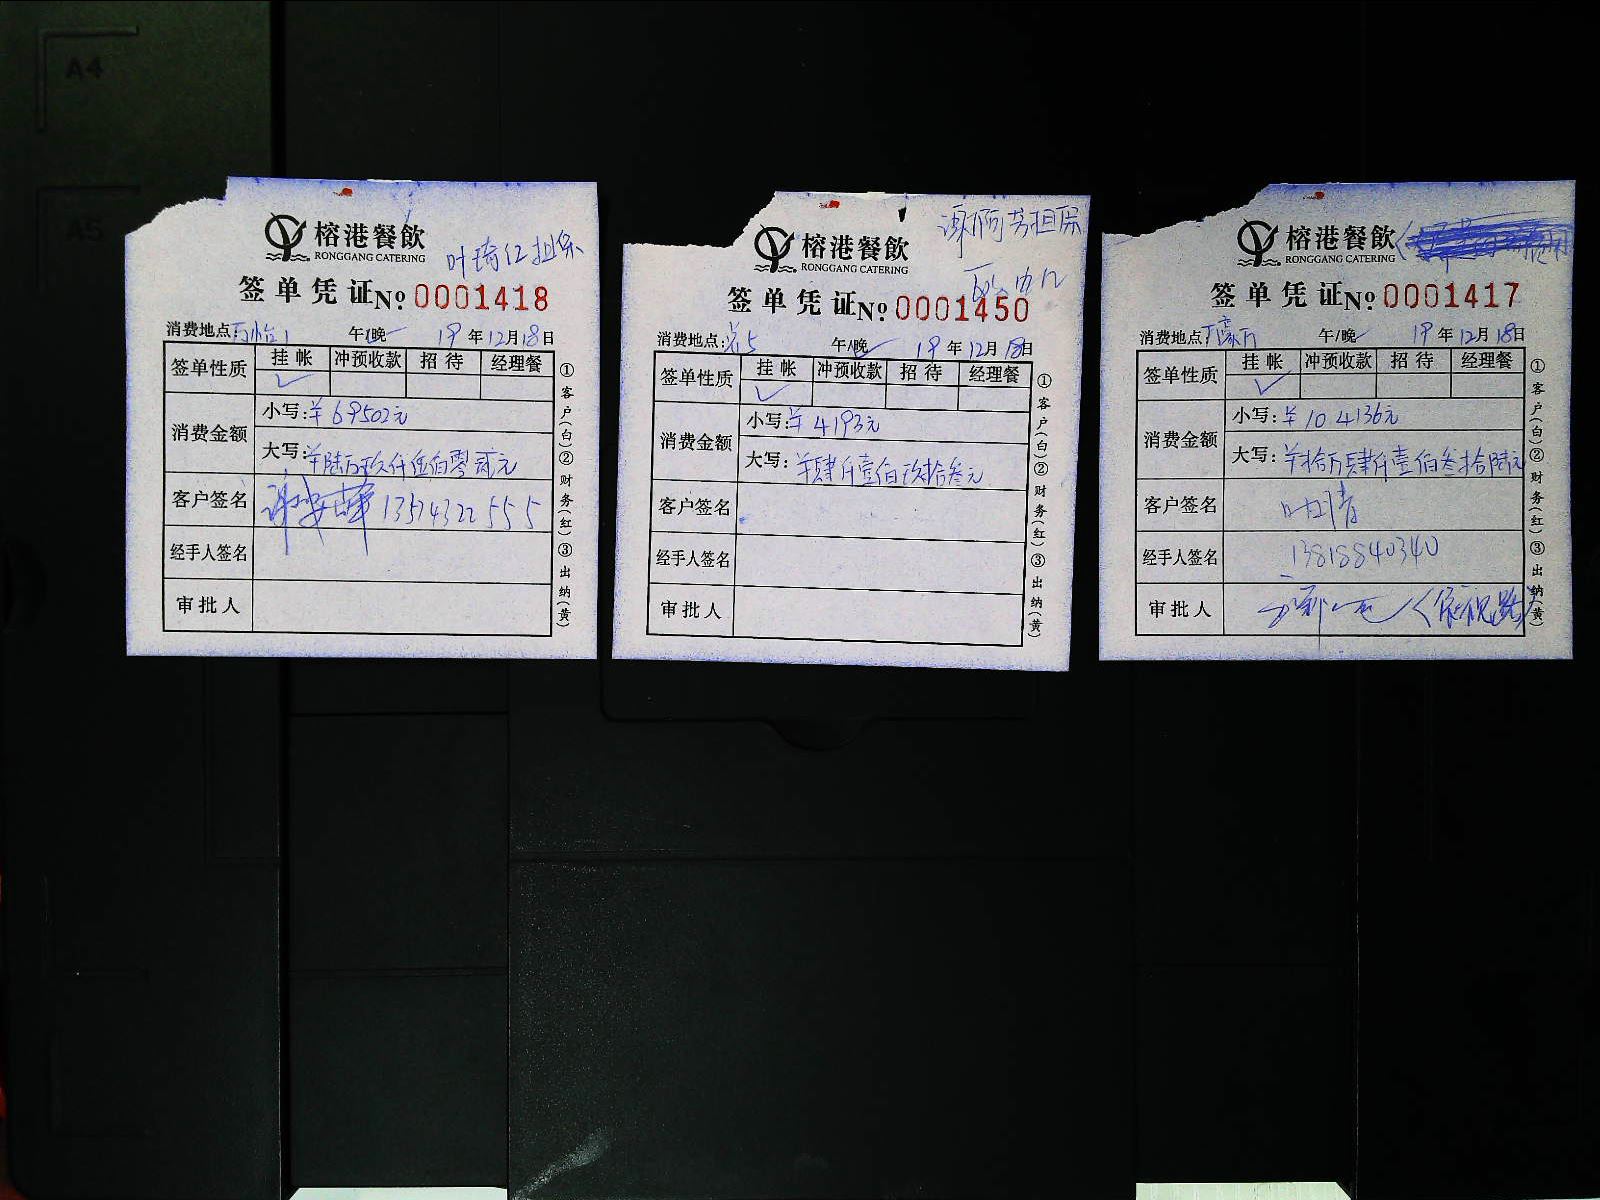 A4
A5
榕港餐飲
RONGGANG CATERING
叶琦红担保
签单凭证 No 0001418
消费地点: 午/晚 19年12月18日
签单性质 挂帐 冲预收款 招待 经理餐
✓
消费金额 小写:¥69502元
大写:¥陆万玖仟伍佰零贰元
客户签名 13574322555
经手人签名
审批人
①客户(白)②财务(红)③出纳(黄)
榕港餐飲
RONGGANG CATERING
担保
签单凭证 No 0001450
消费地点: 5 午/晚 19年12月18日
签单性质 挂帐 冲预收款 招待 经理餐
✓
消费金额 小写:¥4193元
大写:¥肆仟壹佰玖拾叁元
客户签名
经手人签名
审批人
①客户(白)②财务(红)③出纳(黄)
榕港餐飲
RONGGANG CATERING
签单凭证 No 0001417
消费地点: 午/晚 19年12月18日
签单性质 挂帐 冲预收款 招待 经理餐
✓
消费金额 小写:¥104136元
大写:¥拾万肆仟壹佰叁拾陆元
客户签名
经手人签名 13818840340
审批人
①客户(白)②财务(红)③出纳(黄)